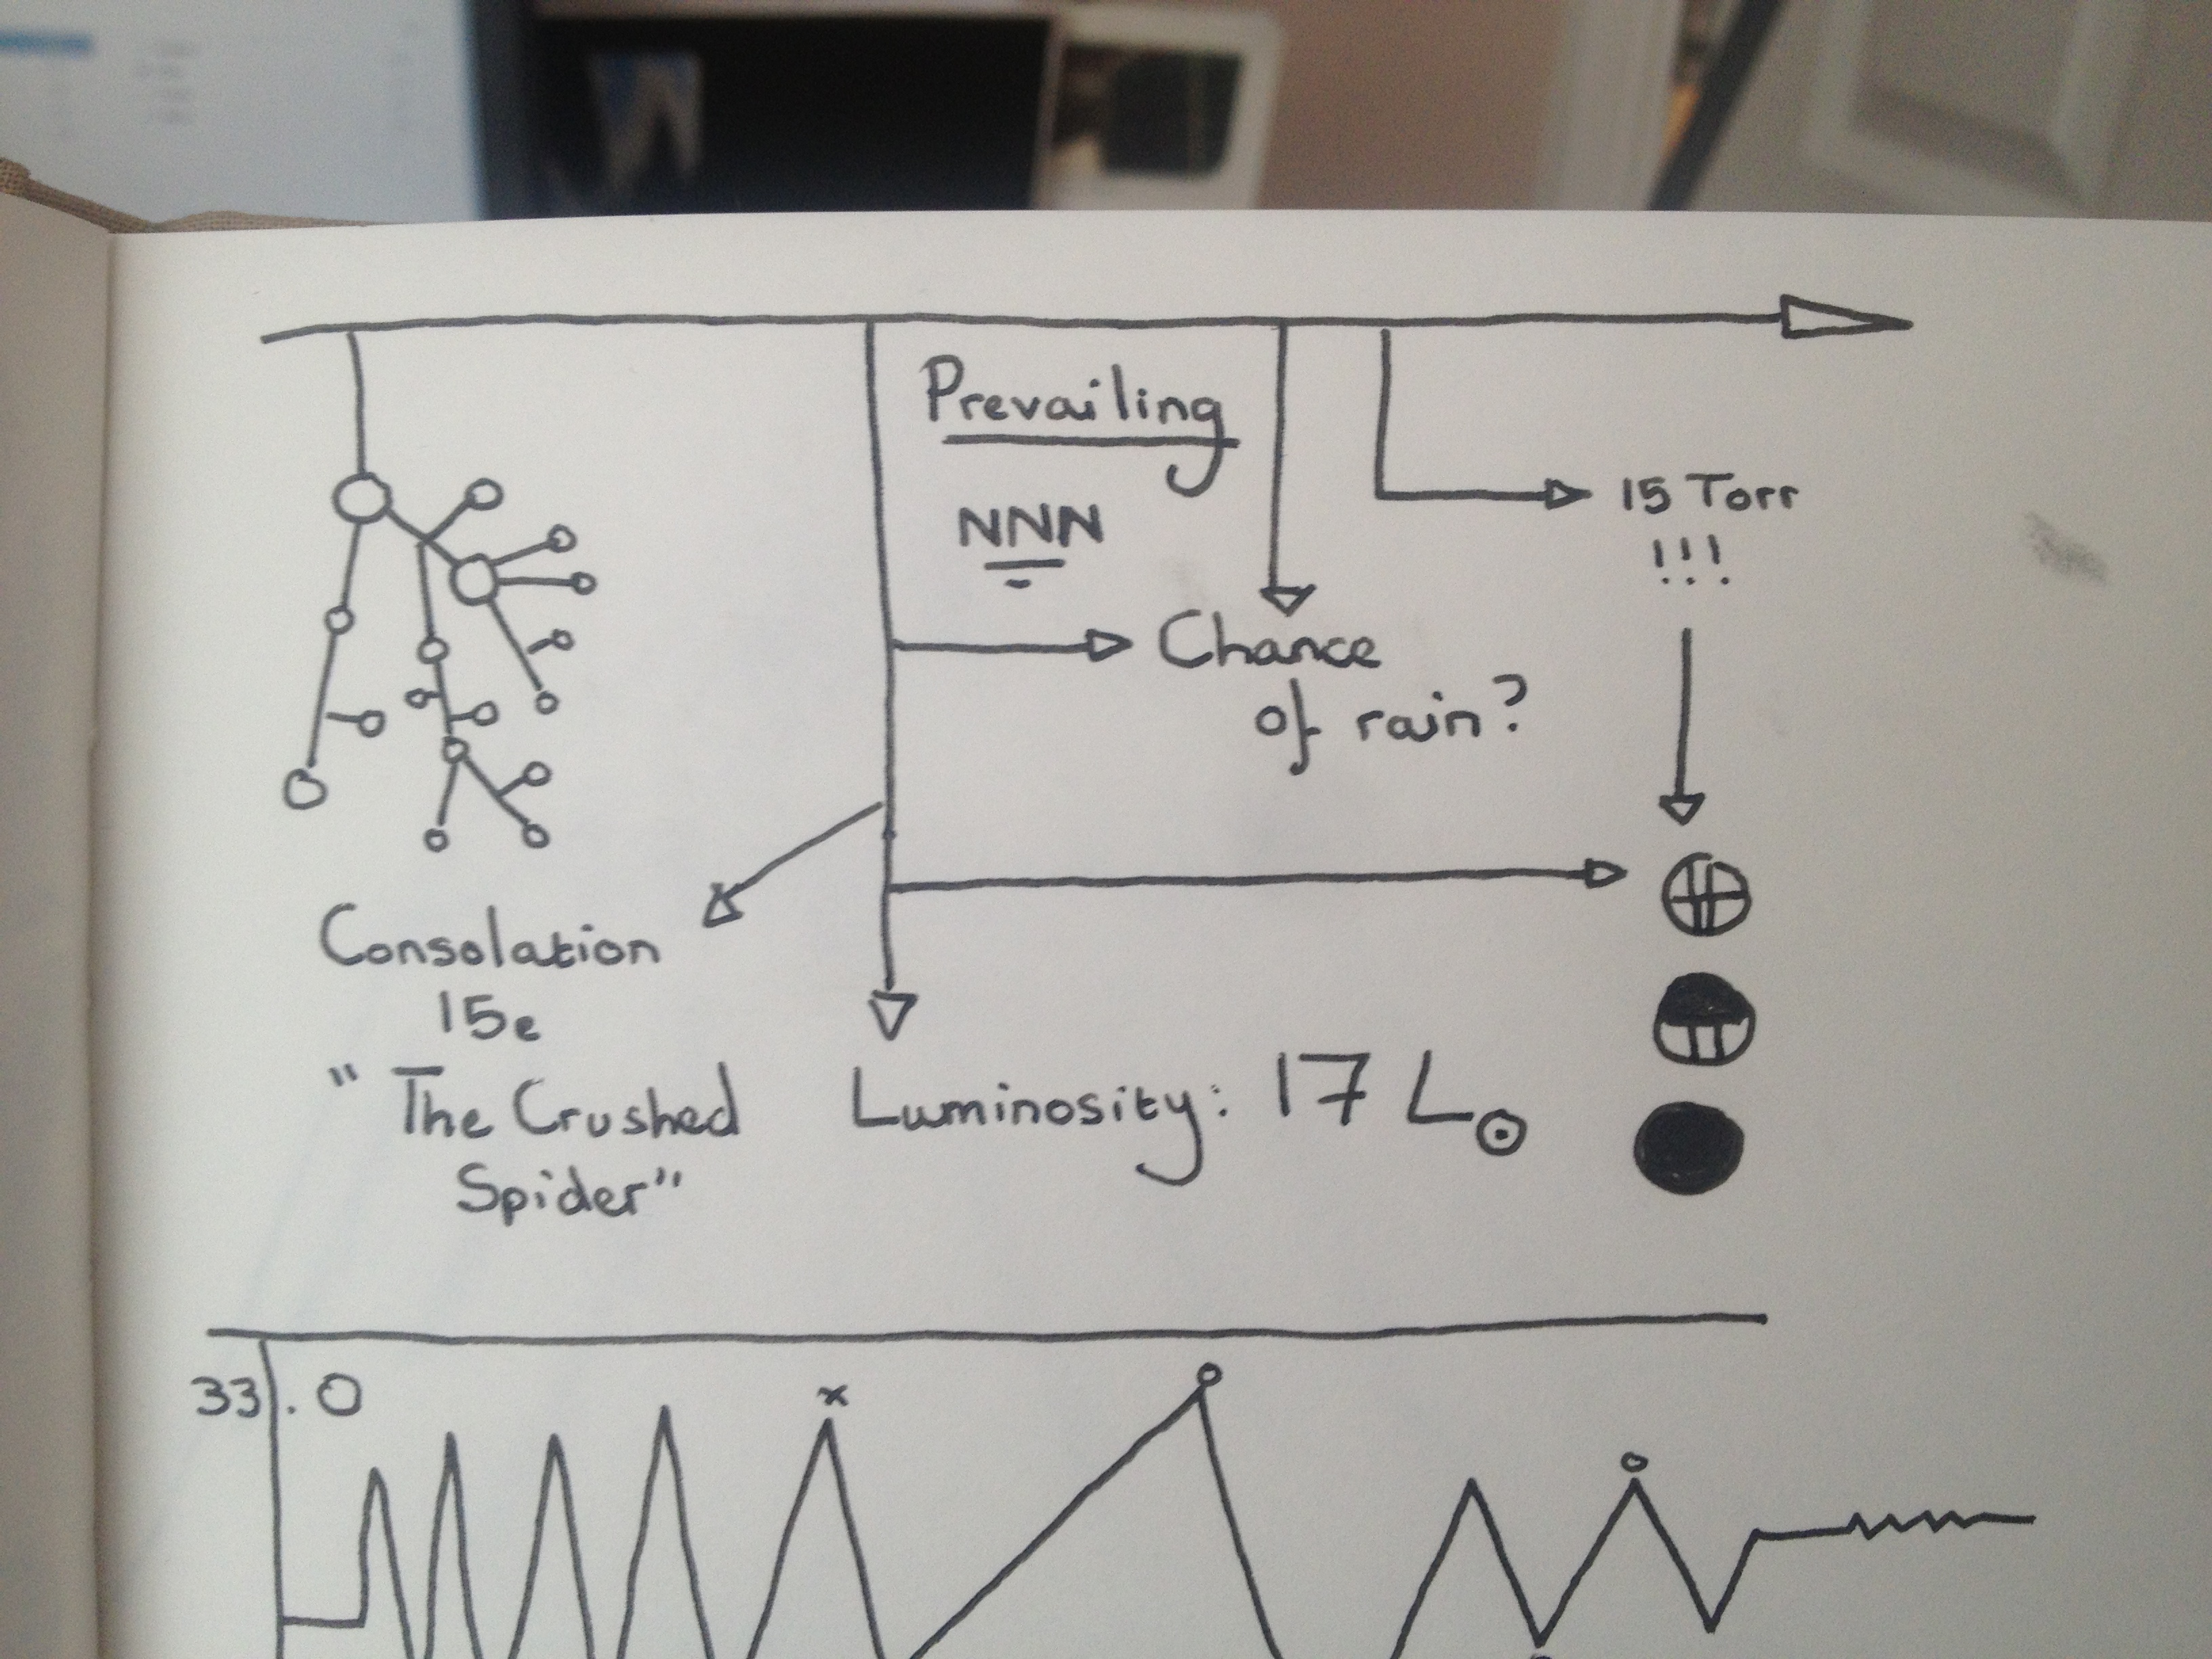 Prevailing
NNN
15 Torr
!!!
Chance
of rain?
Consolation
15e
"The Crushed
Spider"
Luminosity: 17 L☉
33.0